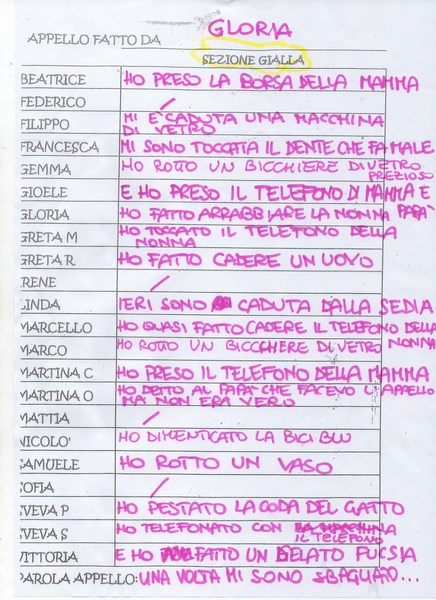 GLORIA
APPELLO FATTO DA
SEZIONE GIALLA
BEATRICE HO PRESO LA BORSA DELLA MAMMA
FEDERICO /
FILIPPO MI È CADUTA UNA MACCHINA
DI VETRO
FRANCESCA MI SONO TOCCATA IL DENTE CHE FA MALE
GEMMA HO ROTTO UN BICCHIERE DI VETRO
PREZIOSO
GIOELE E HO PRESO IL TELEFONO DI MAMMA E
PAPA'
GLORIA HO FATTO ARRABBIARE LA NONNA
GRETA M HO TOCCATO IL TELEFONO DELLA
NONNA
GRETA R HO FATTO CADERE UN UOVO
IRENE /
LINDA IERI SONO CADUTA DALLA SEDIA
MARCELLO HO QUASI FATTO CADERE IL TELEFONO DELLA
NONNA
MARCO HO ROTTO UN BICCHIERE DI VETRO
MARTINA C HO PRESO IL TELEFONO DELLA MAMMA
MARTINA O HO DETTO AL PAPA' CHE FACEVO L'APPELLO
MA NON ERA VERO
MATTIA /
NICOLO' HO DIMENTICATO LA BICI BLU
SAMUELE HO ROTTO UN VASO
SOFIA /
SVEVA P HO PESTATO LA CODA DEL GATTO
SVEVA S HO TELEFONATO CON LA MACCHINA
IL TELEFONO
VITTORIA E HO FATTO UN GELATO FUCSIA
PAROLA APPELLO: UNA VOLTA MI SONO SBAGLIATO...